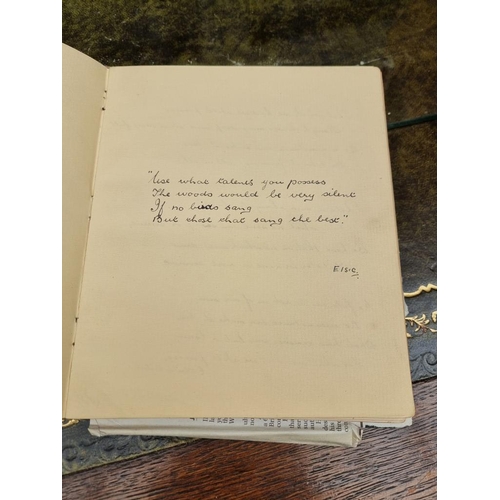 "Use what talents you possess
The woods would be very silent
If no birds sang
But those that sang the best."
Elsie.